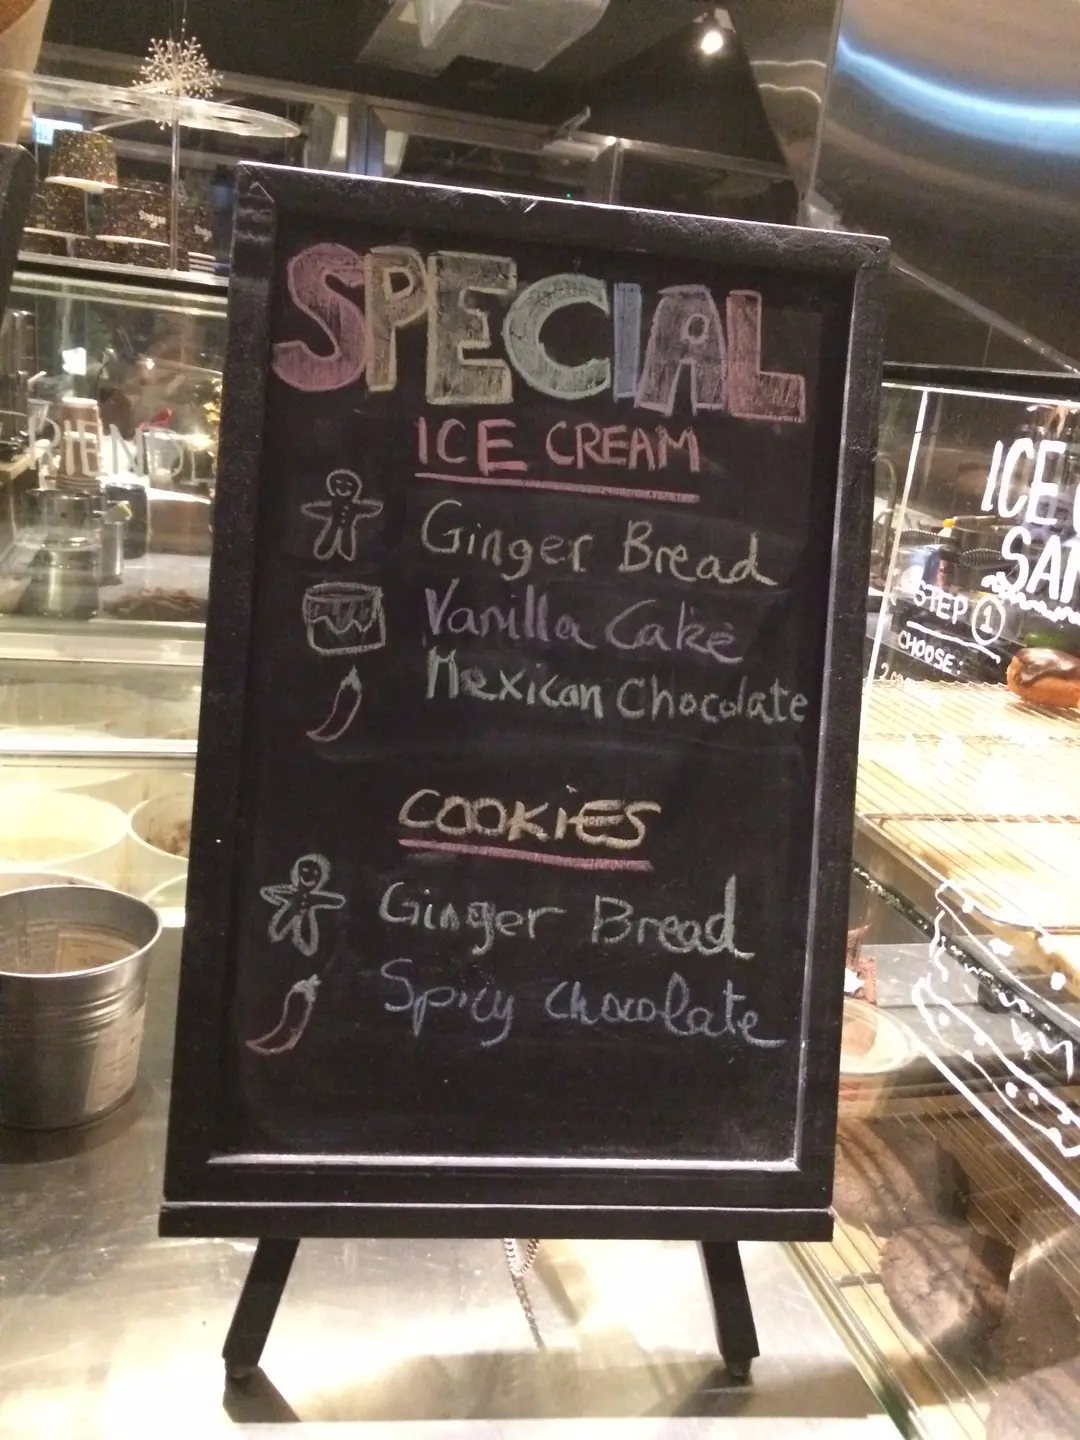 SPECIAL
ICE CREAM
Ginger Bread
Vanilla Cake
Mexican Chocolate
COOKIES
Ginger Bread
Spicy Chocolate
RIEND
ICE
SAN
STEP 1
CHOOSE:
2